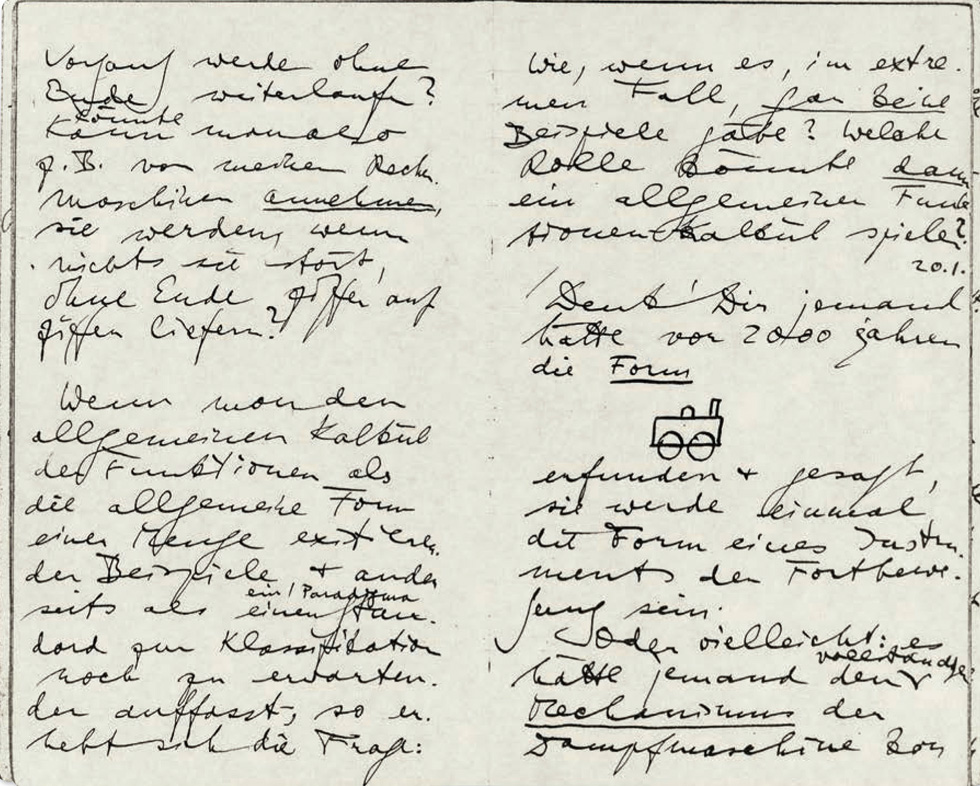 Vorgang werde ohne
Ende weiterlaufen?
könnte
Kann man also
z.B. von meinen Rech-
maschinen annehmen,
sie werden, wenn
nichts sie stört,
ohne Ende Ziffer auf
Ziffer liefern?
Wenn man den
allgemeinen Kalkül
der Funktionen als
die allgemeine Form
einer Menge existieren-
der Beispiele, + ander
ein Paradigma
seits als einen Stan-
dard zur Klassifikation
noch zu erwarten-
der auffasst, so er-
hebt sich die Frage:
Wie, wenn es, im extre-
men Fall, gar keine
Beispiele gäbe? Welche
Rolle könnte dann
ein allgemeiner Funk
tionenkalkül spielen?
20.1.
Denk' Dir jemand
hätte vor 2000 Jahren
die Form
erfunden + gesagt,
sie werde einmal
die Form eines Instru-
ments der Fortbewe-
gung sein.
Oder vielleicht: es
vollständigen
hätte jemand den
Mechanismus der
Dampfmaschine kon